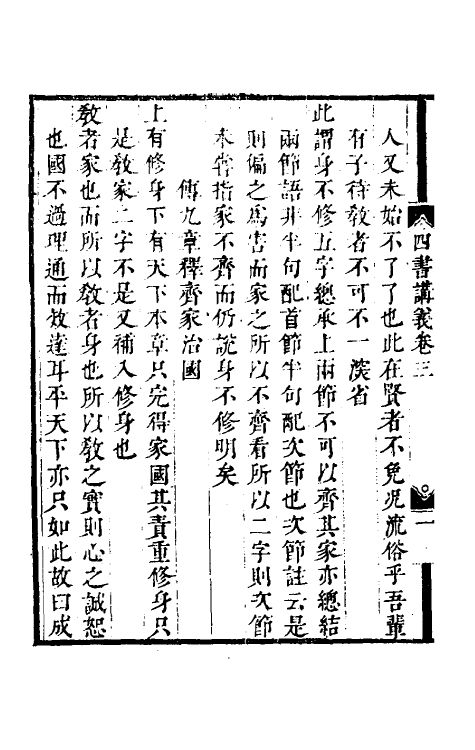 四書講義卷三
一
人又未始不了了也此在賢者不免况流俗乎吾輩
有子待敎者不可不一深省
此謂身不修五字總承上兩節不可以齊其家亦總結
兩節語非半句配首節半句配次節也次節註云是
則偏之爲害而家之所以不齊看所以二字則次節
未嘗指家不齊而仍說身不修明矣
傳九章釋齊家治國
上有修身下有天下本章只完得家國其責重修身只
是敎家二字不是又補入修身也
敎者家也而所以敎者身也所以敎之實則心之誠恕
也國不過理通而效達耳平天下亦只如此故曰成